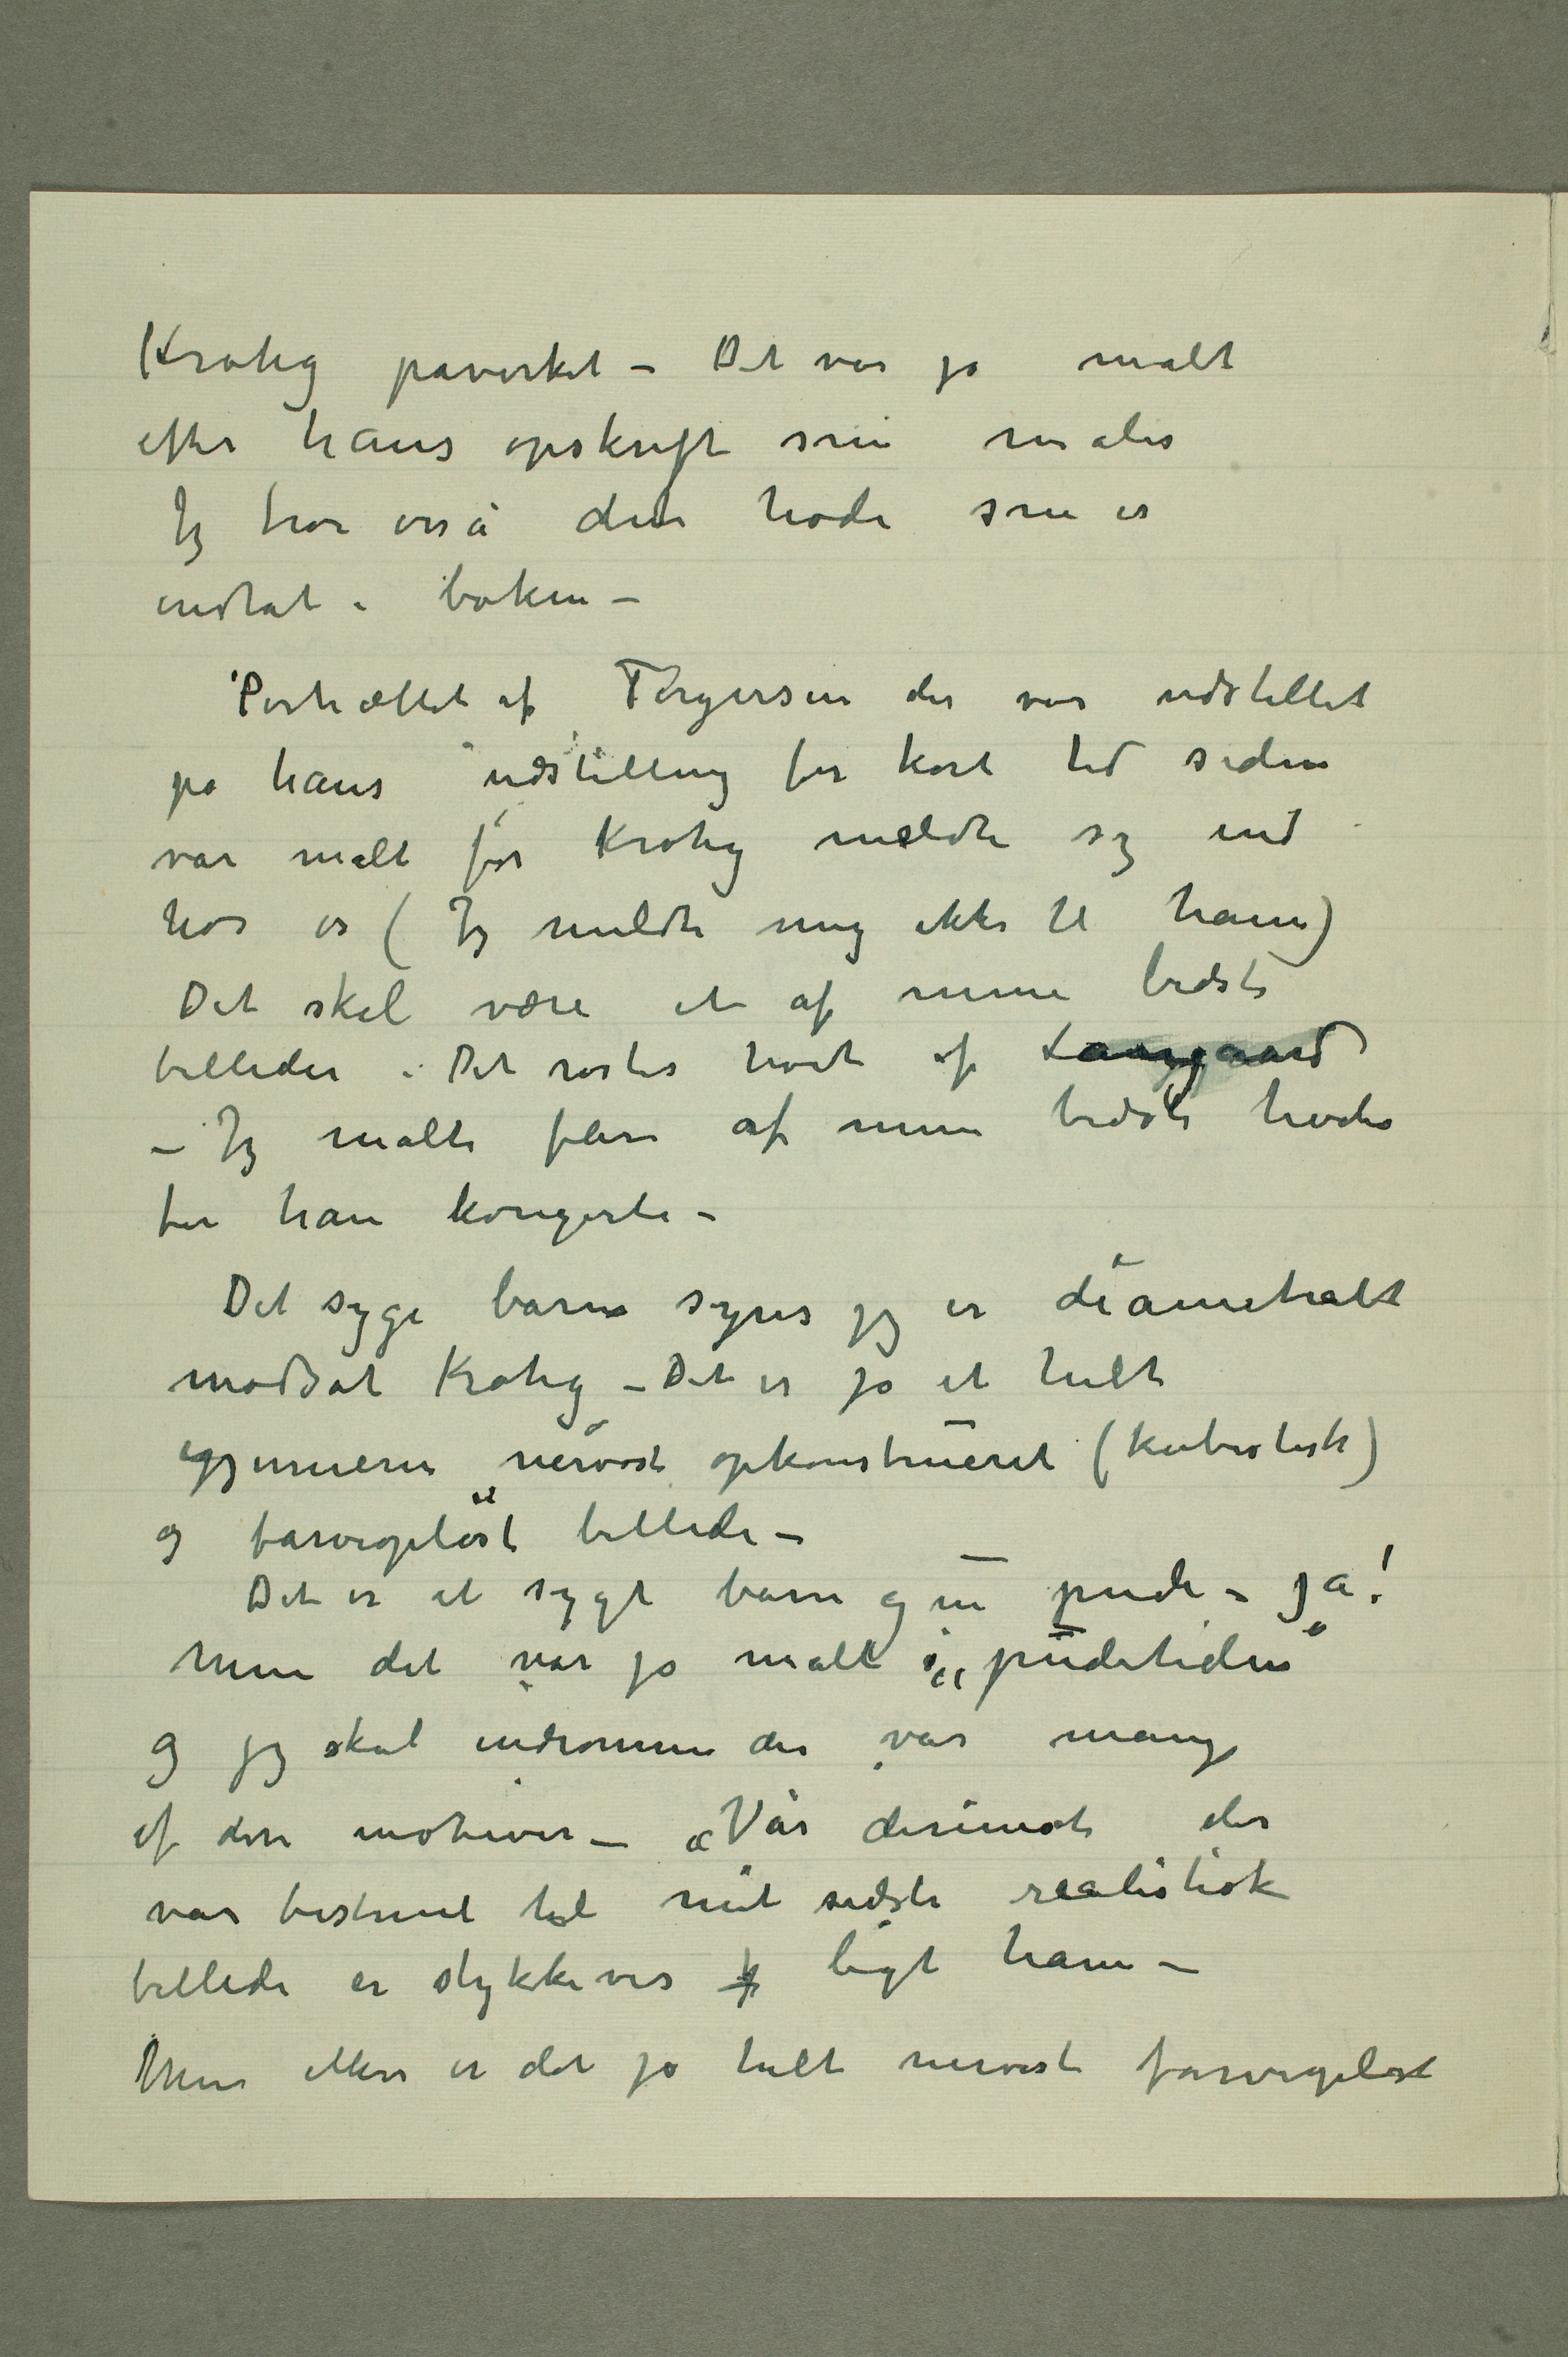 Krohg påvirket – Det var jo malt
efter hans opskrift som males
Jeg tror også dette hode som er
indtat i boken –
Portrættet af Torgersen der var udstillet
på hans udstilling for kort tid siden
var malt før Krohg meldte sig ind
hos os (Jeg meldte mig ikke til ham)
Det skal være et af mine bedste
billeder. Det rostes høit af Langgaard
– Jeg malte flere af mine bedste hoder
før han korigerte –
Det syge barn synes jeg er diametralt
modsat Krohg – Det er jo et helt
igjennem nervøst opkonstrueret (kubistisk)
og farveopløst billede –
Det er et sygt barn og en pude – ja!
Men det var jo malt i „pudetiden“
og jeg skal indrømme der var mange
af den motiver – „Vår derimot der
var bestemt til mit sidste realistisk
billede er stykkevis ligt ham –
Men ellers er det jo helt nervøst farveopløst